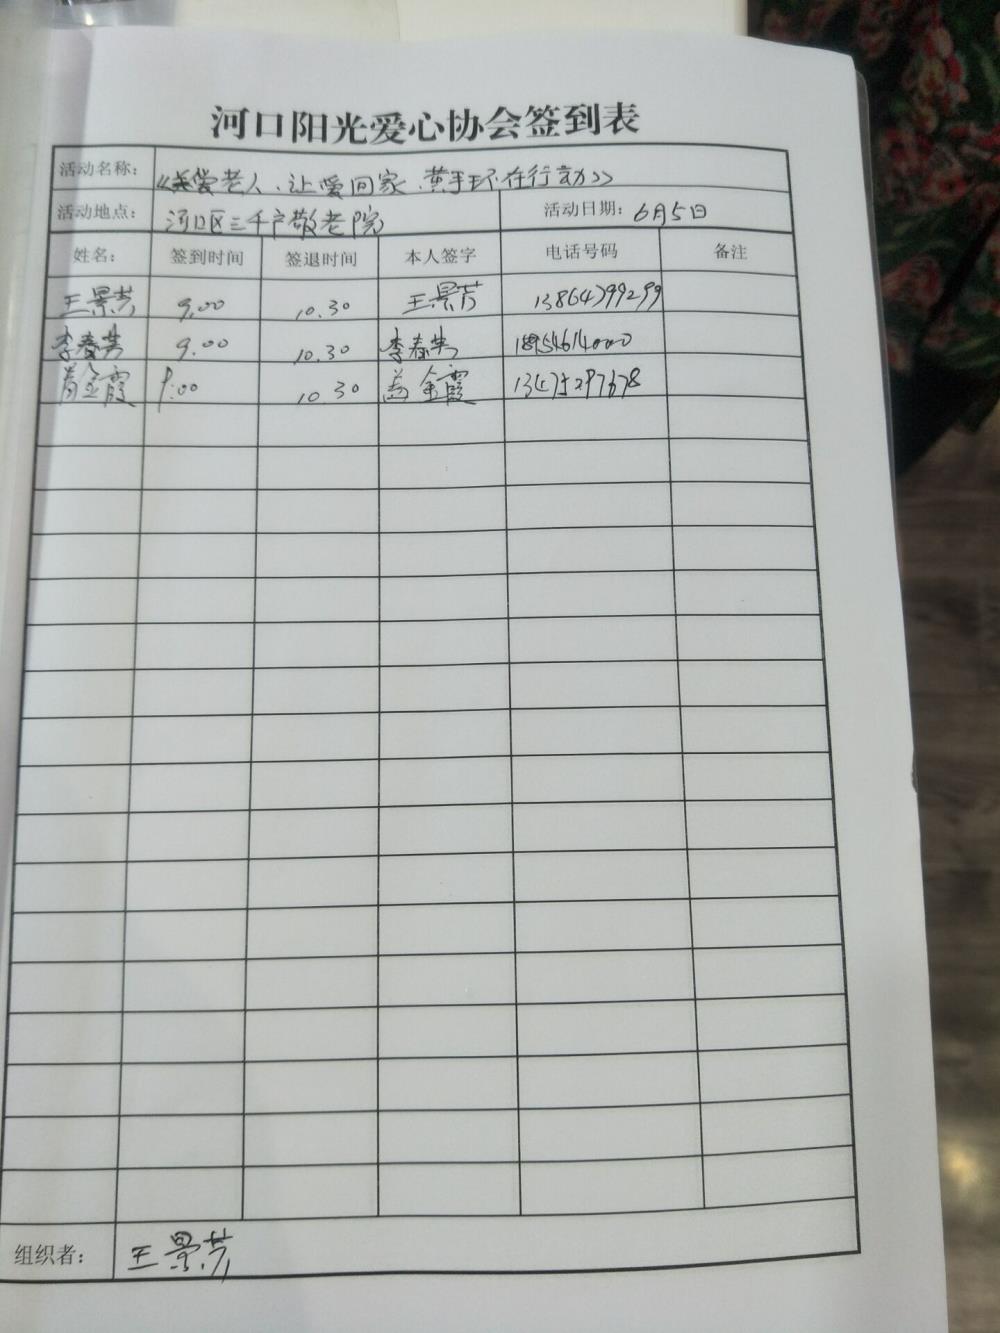 河口阳光爱心协会签到表
活动名称: 《关爱老人、让爱回家、黄手环在行动》
活动地点: 河口区三千户敬老院 活动日期: 6月5日
姓名: 签到时间 签退时间 本人签字 电话号码 备注
王景芳 9.00 10.30 王景芳 13864799299
李春芳 9.00 10.30 李春芳 18954614000
金霞 9.00 10.30 金霞
组织者: 王景芳